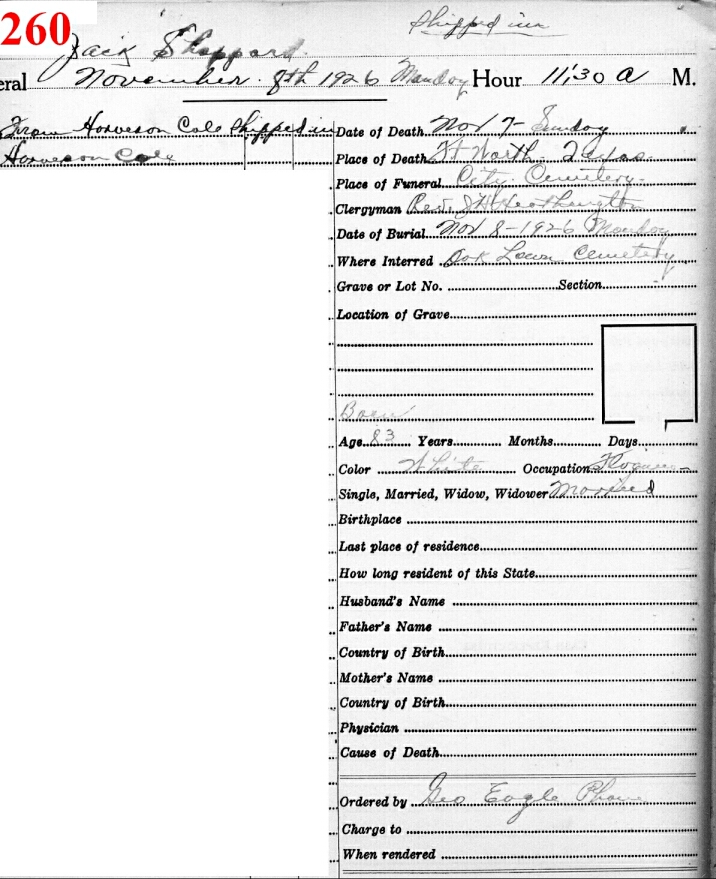 260
Shipped in
Jack Sheppard
eral November 8th 1926 Monday Hour 11:30 A M.
From Harveson Cole Shipped in
Harveson Cole
Date of Death Nov 7- Sunday
Place of Death Ft Worth Texas
Place of Funeral City Cemetery
Clergyman Rev. J H Heathington
Date of Burial Nov 8-1926 Monday
Where Interred Oak Lawn Cemetery
Grave or Lot No. Section
Location of Grave
Born
Age 83 Years Months Days
Color White Occupation
Single, Married, Widow, Widower Married
Birthplace
Last place of residence
How long resident of this State
Husband's Name
Father's Name
Country of Birth
Mother's Name
Country of Birth
Physician
Cause of Death
Ordered by Geo Eagle Phone
Charge to
When rendered